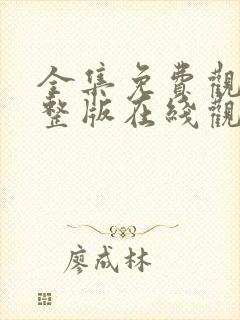 全集免費觀
整版在綫觀
廖成林